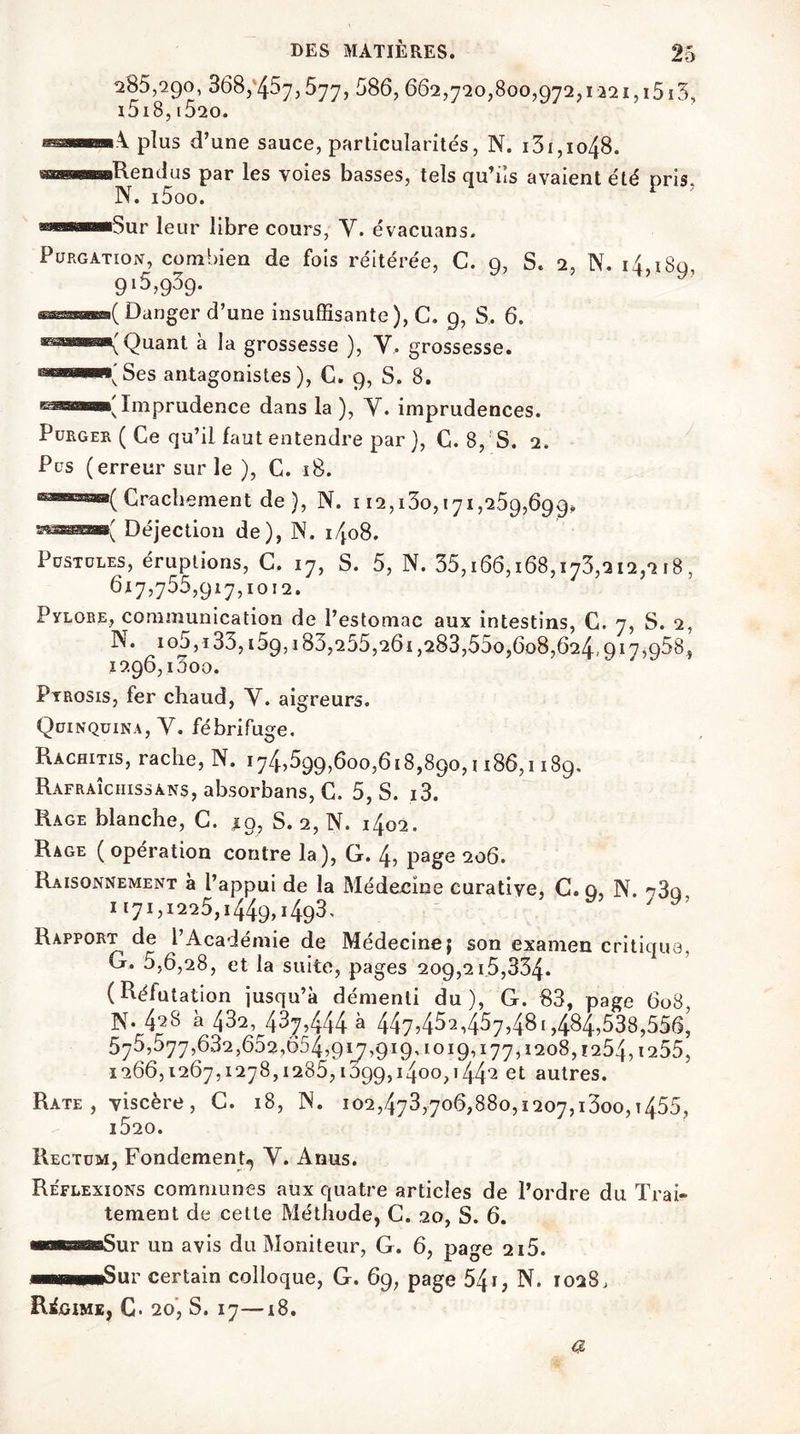 DES MATIÈRES. 25
285,290, 368, 457, 577, 586, 662,720,800,972,1221,1513,
1518,1520.
A plus d'une sauce, particularités, N. 131,1048.
Rendus par les voies basses, tels qu'ils avaient été pris,
N. 1500.
Sur leur libre cours, V. évacuans.
PURGATION, combien de fois réitérée, C. 9, S. 2, N. 14,189,
915,939.
( Danger d'une insuffisante ), C. 9, S. 6.
( Quant à la grossesse ), V. grossesse.
( Ses antagonistes ), C. 9, S. 8.
( Imprudence dans la ), V. imprudences.
PURGER ( Ce qu'il faut entendre par ), C. 8, S. 2.
PUS (erreur sur le ), C. 18.
( Crachement de ), N. 112,130,171,259,699.
( Déjection de), N. 1408.
PUSTULES, éruptions, C. 17, S. 5, N. 35,166,168,173,212,218,
617,755,917,1012.
PYLORE, communication de l'estomac aux intestins, C. 7, S. 2,
N. 105,133,159,183,255,261,283,550,608,624,917,958,
1296,1300.
PYROSIS, fer chaud, V. aigreurs.
QUINQUINA, V. fébrifuge.
RACHITIS, rache, N. 174,599,600,618,890,1186,1189.
RAFRAÎCHISSANS, absorbans, C. 5, S. 13.
RAGE blanche, C. 19, S. 2, N. 1402.
RAGE ( opération contre la), G. 4, page 206.
RAISONNEMENT à l'appui de la Médecine curative, C. 9, N. 739,
1171,1225,1449,1493.
RAPPORT de l'Académie de Médecine; son examen critique,
G. 5,6,28, et la suite, pages 209,215,334.
(Réfutation jusqu'à démenti du ), G. 83, page 608,
N. 428 à 432, 437,444 à 447,452,457,481,484,538,556,
575,577,632,652,654,917,919,1019,177,1208,1254,1255,
1266,1267,1278,1285,1399,1400,1442 et autres.
RATE , viscère, C. 18, N. 102,473,706,880,1207,1300,1455,
1520.
RECTUM, Fondement, V. Anus.
RÉFLEXIONS communes aux quatre articles de l'ordre du Trai-
tement de cette Méthode, C. 20, S. 6.
Sur un avis du Moniteur, G. 6, page 215.
Sur certain colloque, G. 69, page 541, N. 1028.
RÉGIME, C. 20, S. 17—18.
a